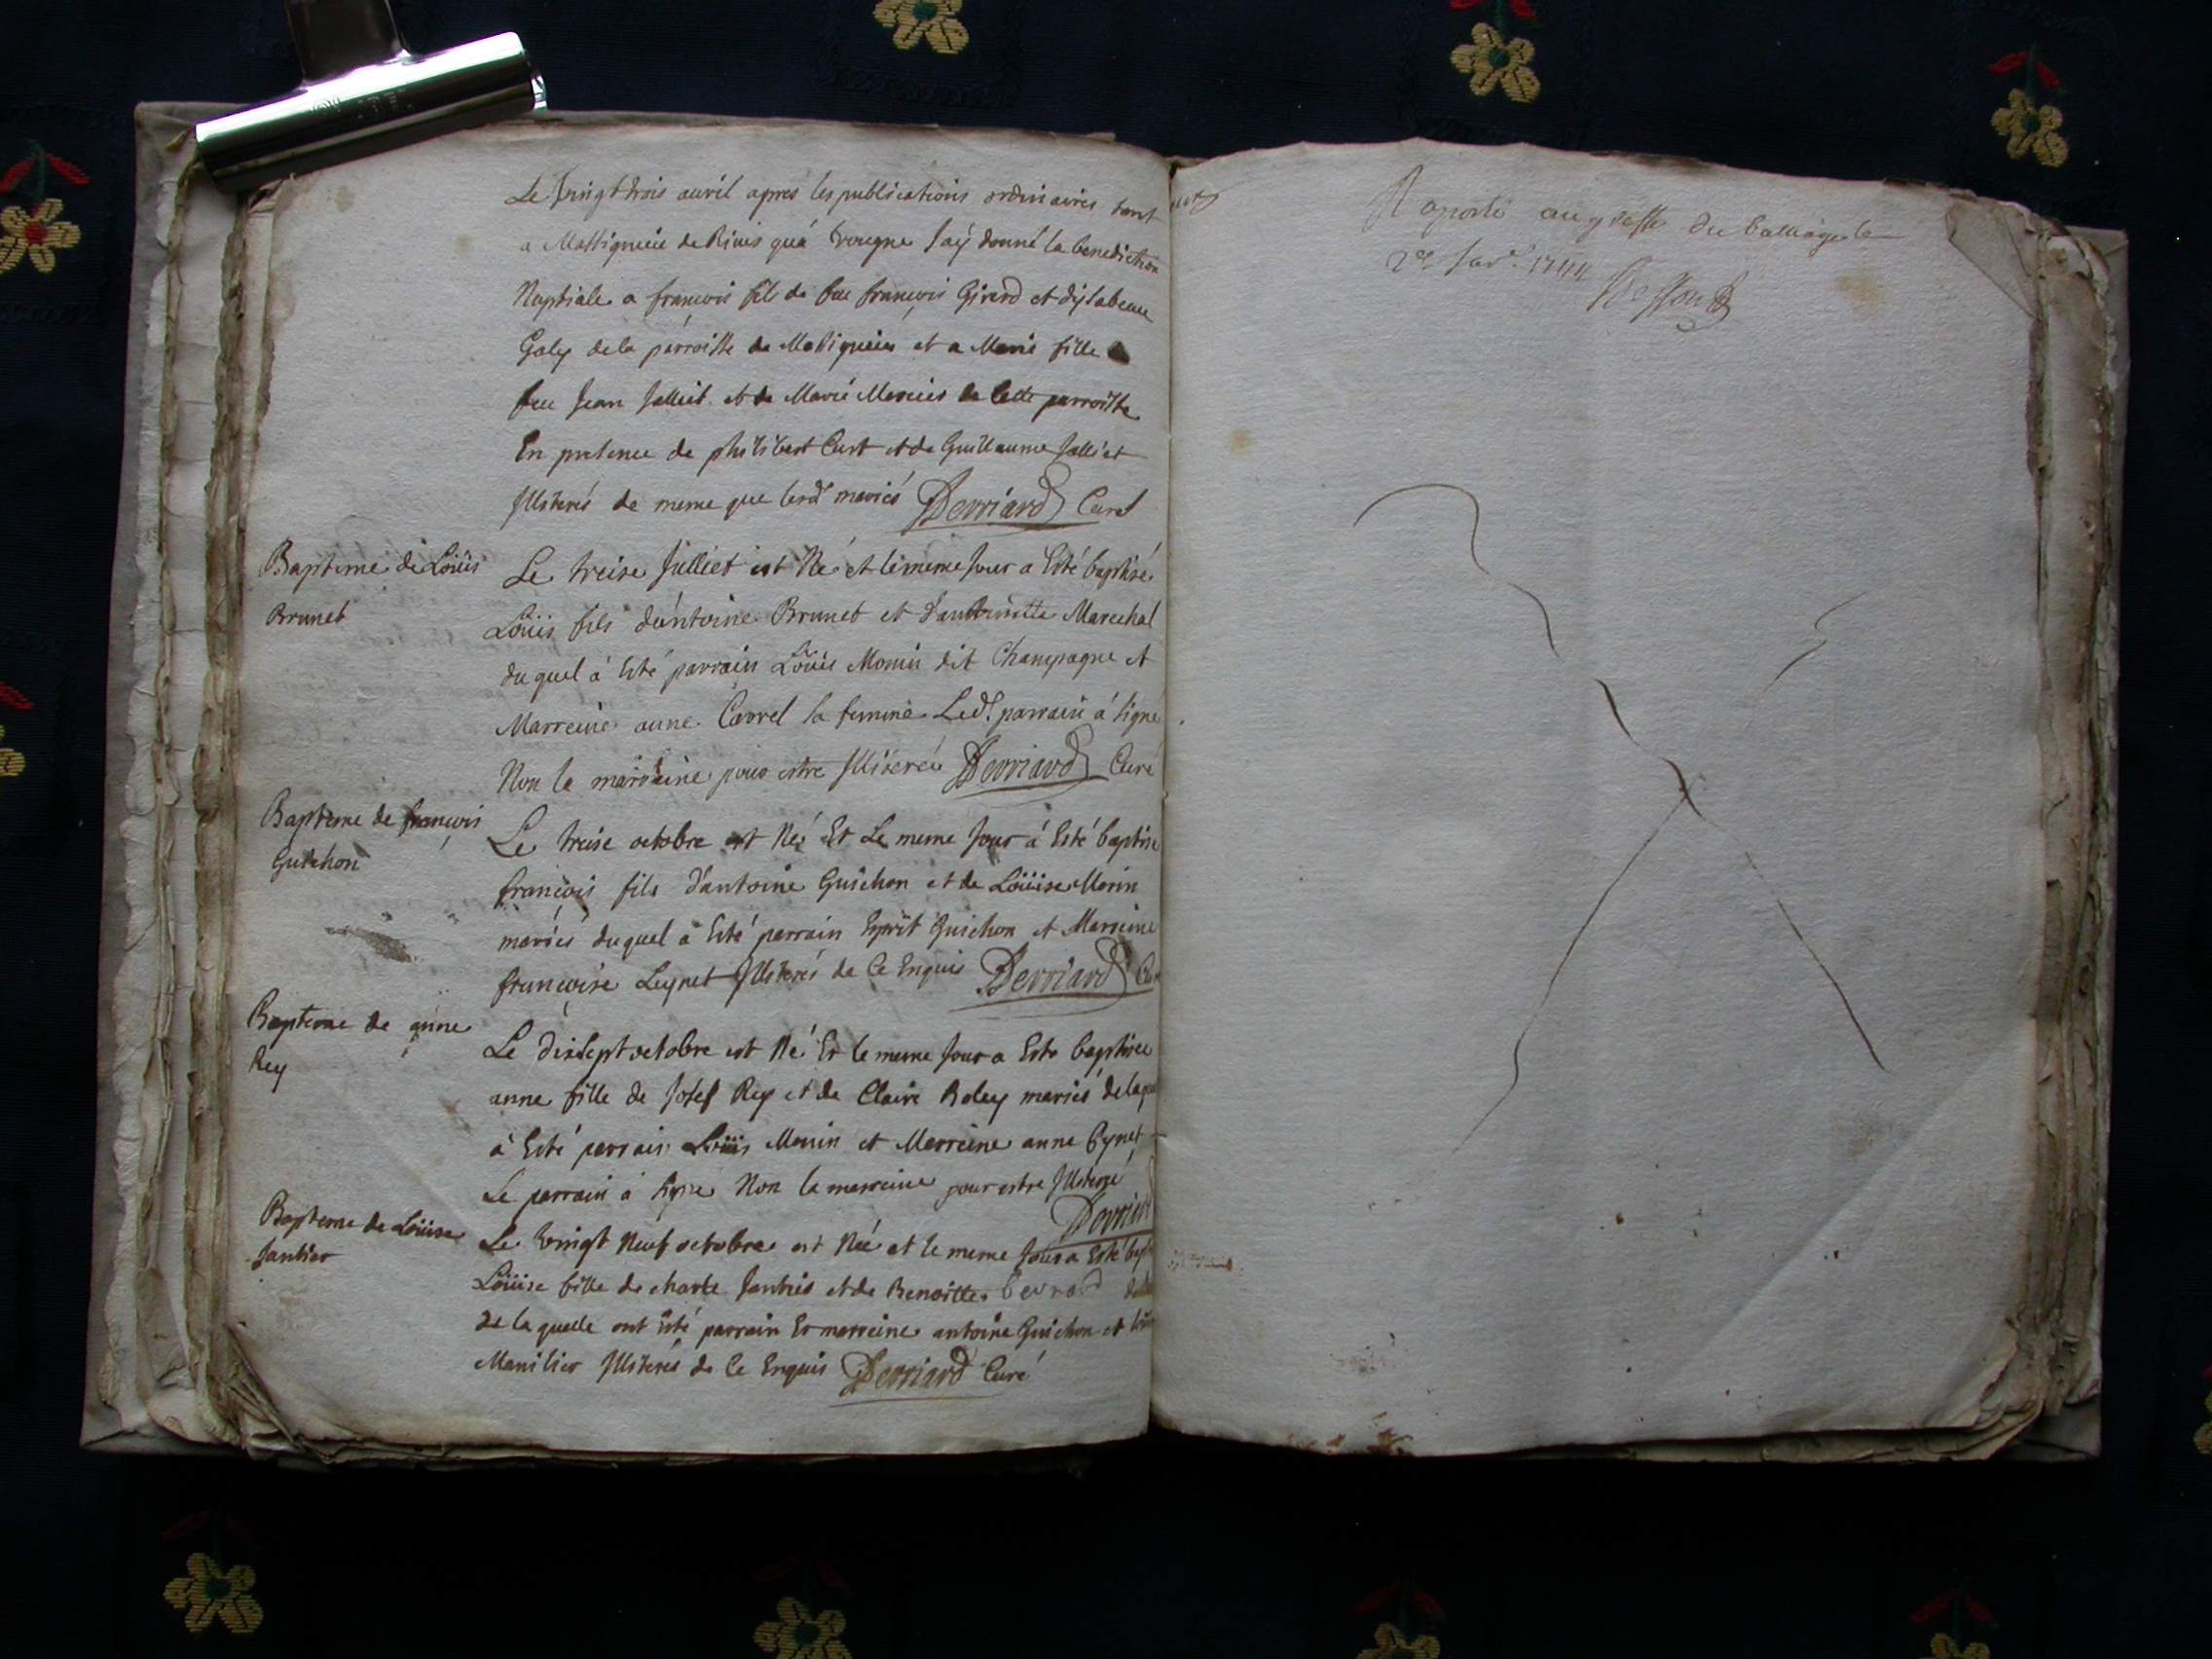 Le vingt trois avril apres les publications ordinaires tant
a Massignieu de Rives qu'a vougne J'ay donné la benediction
Nuptiale a françois fils de feu françois Girard et d'ysabeau
Goly de la parroisse de Massignieu et a Marie fille
feu Jean Jullict et de Marie Mercier de Cette parroisse
En presence de philibert Curt et de Guillaume Jalliet
Illiterés de meme que lesd mariés Derriard Curé
Baptême de Loüis
Brunet
Le treise Julliet est Né et le meme Jour a Esté baptisé
Loüis fils d'antoine Brunet et d'antoinette Marechal
du quel à Esté parrain Loüis Monin dit Champagne et
Marreine anne Carrel sa femme Led. parrain à signé
Non la marraine pour estre Illiterée Derriard Curé
Baptême de françois
Guichon
Le treise octobre est Né Et Le meme Jour à Esté baptisé
françois fils d'antoine Guichon et de Loüise Morin
mariés duquel à Esté parrain Esprit Guichon et Marreine
françoise Leynet Illiterés de Ce Enquis Derriard Cur
Baptême de anne
Rey
Le dixsept octobre est Né Et le meme Jour a Esté baptisée
anne fille de Josef Rey et de Claire Boley mariés de laque
à Esté parrain Loüis Monin et Marreine anne Cynet
Le parrain à signé Non la marreine pour estre Illiteré
Derriard
Baptême de Loüise
Jantier
Le vingt Neuf octobre est Née et le meme Jour a Esté bapt
Loüise fille de charle Jantier et de Benoitte bernard
de la quelle ont Esté parrain Et marreine antoine Guichon et
Manilier Illiterés de Ce Enquis Derriard Curé
Raporté au greffe du balliage le
2e Janr 1744